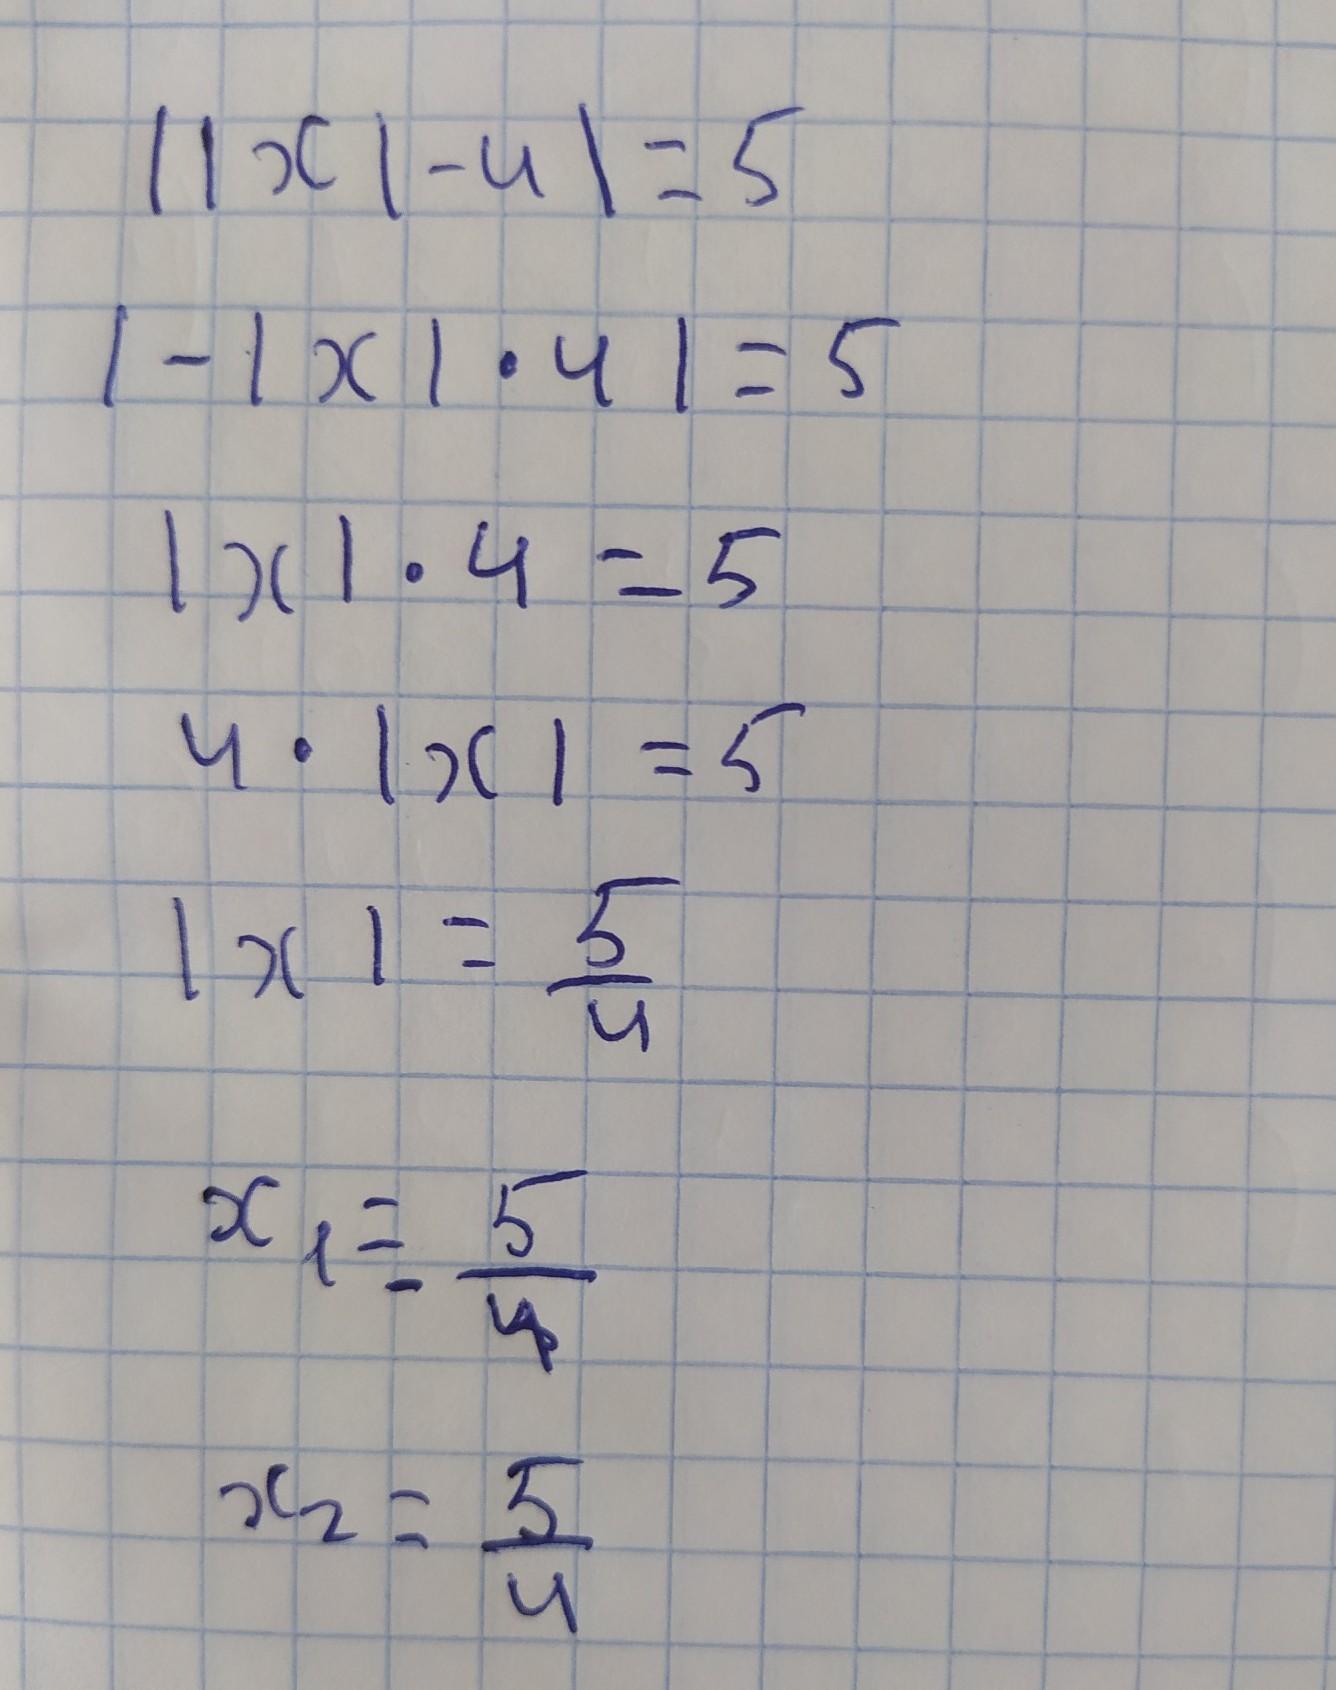 ||x|-4|=5
|-|x|·4|=5
|x|·4=5
4·|x|=5
|x|=5/4
x₁=-5/4
x₂=5/4